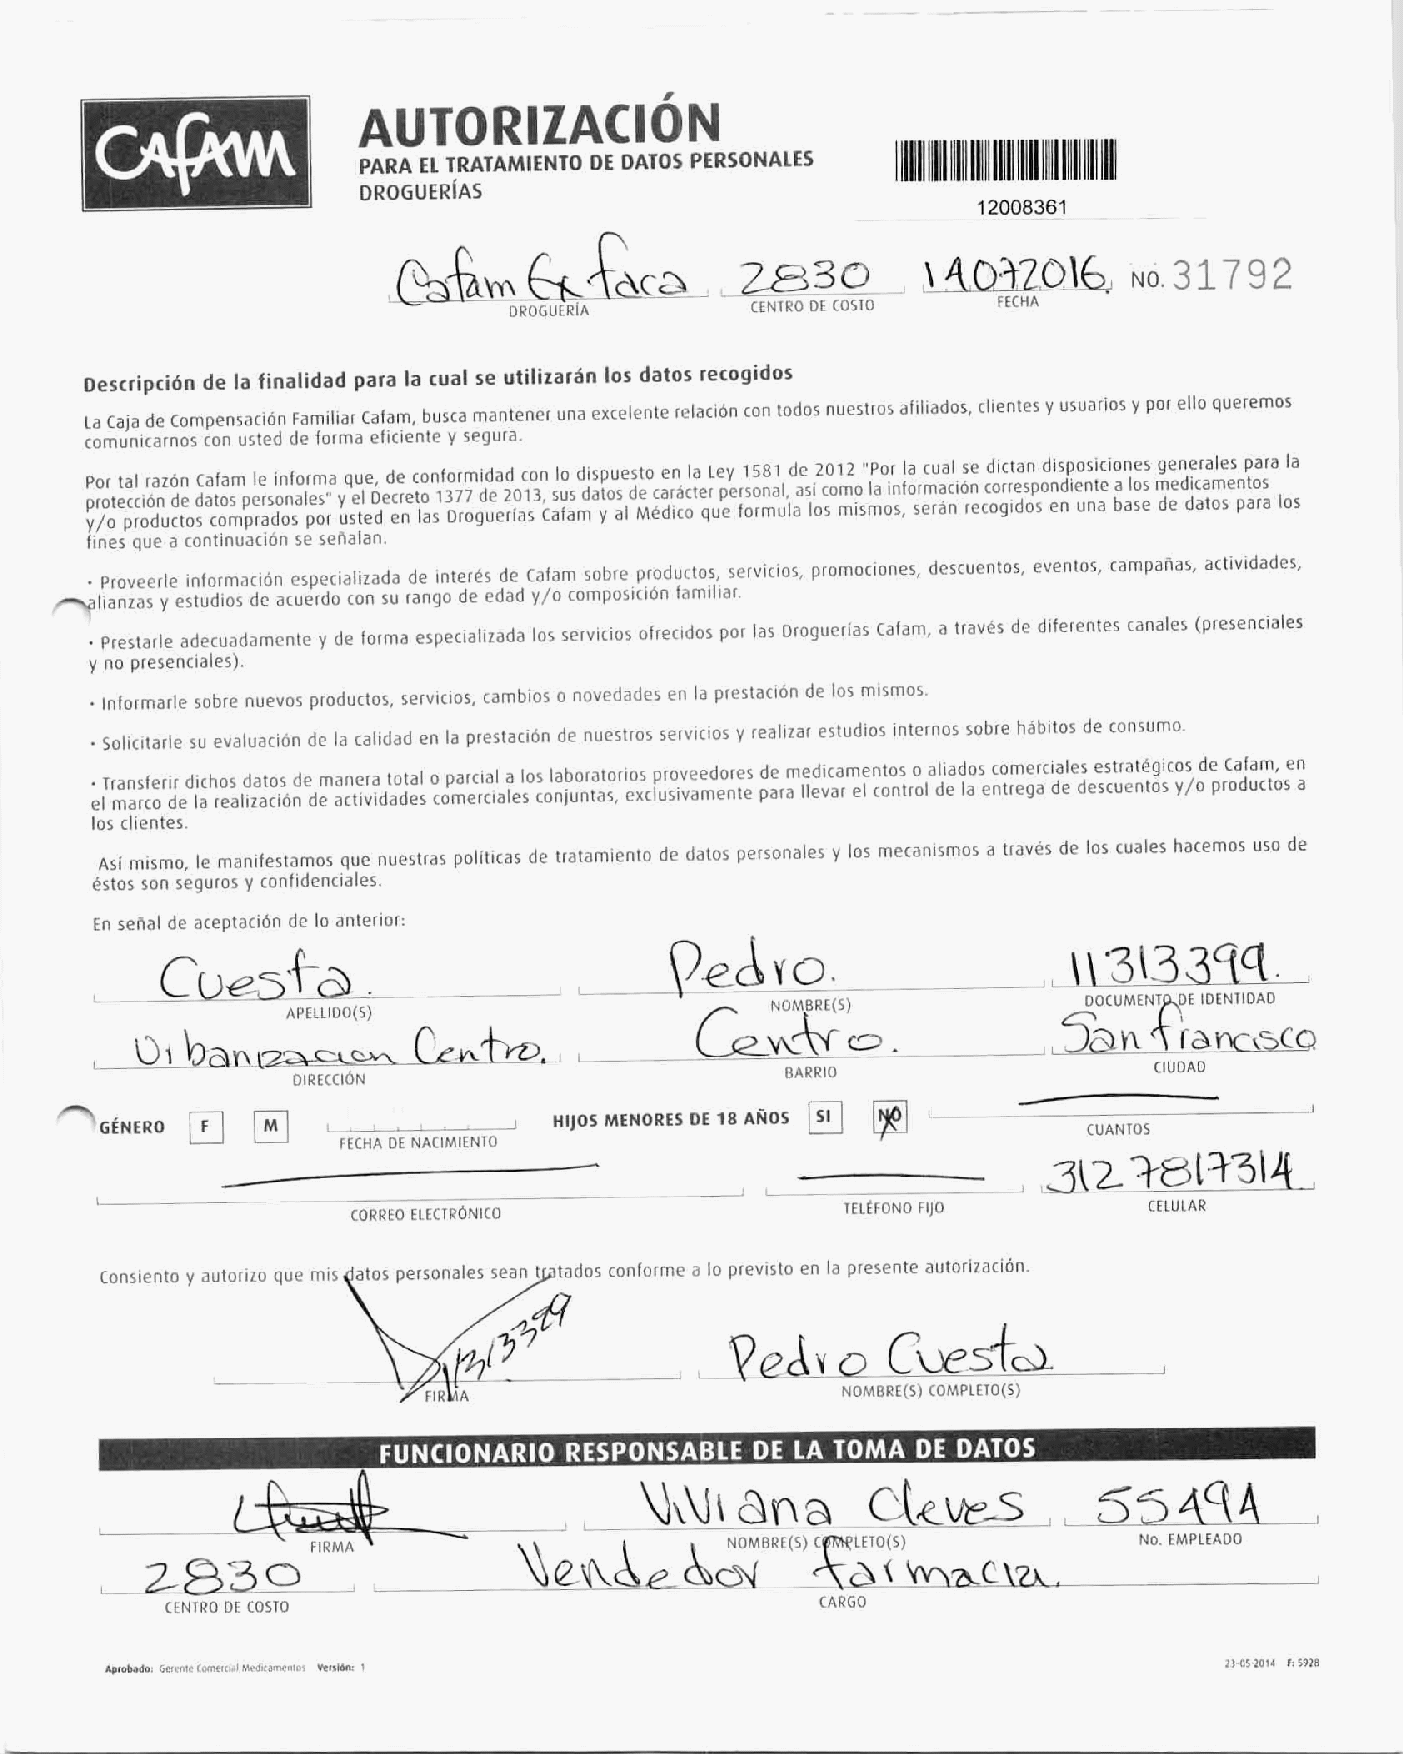 CAFAM
AUTORIZACIÓN
PARA EL TRATAMIENTO DE DATOS PERSONALES
DROGUERÍAS
12008361
Cafam Ex faca 2830 14072016 NO. 31792
DROGUERÍA CENTRO DE COSTO FECHA
Descripción de la finalidad para la cual se utilizarán los datos recogidos
La Caja de Compensación Familiar Cafam, busca mantener una excelente relación con todos nuestros afiliados, clientes y usuarios y por ello queremos
comunicarnos con usted de forma eficiente y segura.
Por tal razón Cafam le informa que, de conformidad con lo dispuesto en la Ley 1581 de 2012 "Por la cual se dictan disposiciones generales para la
protección de datos personales" y el Decreto 1377 de 2013, sus datos de carácter personal, así como la información correspondiente a los medicamentos
y/o productos comprados por usted en las Droguerías Cafam y al Médico que formula los mismos, serán recogidos en una base de datos para los
fines que a continuación se señalan.
· Proveerle información especializada de interés de Cafam sobre productos, servicios, promociones, descuentos, eventos, campañas, actividades,
alianzas y estudios de acuerdo con su rango de edad y/o composición familiar.
· Prestarle adecuadamente y de forma especializada los servicios ofrecidos por las Droguerías Cafam, a través de diferentes canales (presenciales
y no presenciales).
· Informarle sobre nuevos productos, servicios, cambios o novedades en la prestación de los mismos.
· Solicitarle su evaluación de la calidad en la prestación de nuestros servicios y realizar estudios internos sobre hábitos de consumo.
· Transferir dichos datos de manera total o parcial a los laboratorios proveedores de medicamentos o aliados comerciales estratégicos de Cafam, en
el marco de la realización de actividades comerciales conjuntas, exclusivamente para llevar el control de la entrega de descuentos y/o productos a
los clientes.
Así mismo, le manifestamos que nuestras políticas de tratamiento de datos personales y los mecanismos a través de los cuales hacemos uso de
éstos son seguros y confidenciales.
En señal de aceptación de lo anterior:
Cuesta. Pedro. 11313399.
APELLIDO(S) NOMBRE(S) DOCUMENTO DE IDENTIDAD
Urbanizacion Centro. Centro. San francisco
DIRECCIÓN BARRIO CIUDAD
GÉNERO F M HIJOS MENORES DE 18 AÑOS SI NO
FECHA DE NACIMIENTO CUANTOS
3127817314
CORREO ELECTRÓNICO TELÉFONO FIJO CELULAR
Consiento y autorizo que mis datos personales sean tratados conforme a lo previsto en la presente autorización.
Pedro Cuesta
FIRMA NOMBRE(S) COMPLETO(S)
FUNCIONARIO RESPONSABLE DE LA TOMA DE DATOS
Viviana Cleves 55494
FIRMA NOMBRE(S) COMPLETO(S) No. EMPLEADO
2830 Vendedor farmacia.
CENTRO DE COSTO CARGO
Aprobado: Gerente Comercial Medicamentos Versión: 1 23-05-2014 F: 5928